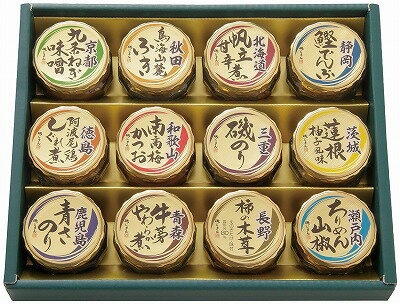 京都
九条ねぎ
味噌
秋田
鳥海山麓
ふき
北海道
帆立
甘辛煮
静岡
鰹でんぶ
徳島
阿波尾鶏
しぐれ煮
和歌山
南高梅
かつお
三重
磯のり
茨城
蓮根
柚子風味
鹿児島
青さ
のり
青森
牛蒡
やわらか煮
長野
柿の木茸
瀬戸内
ちりめん
山椒